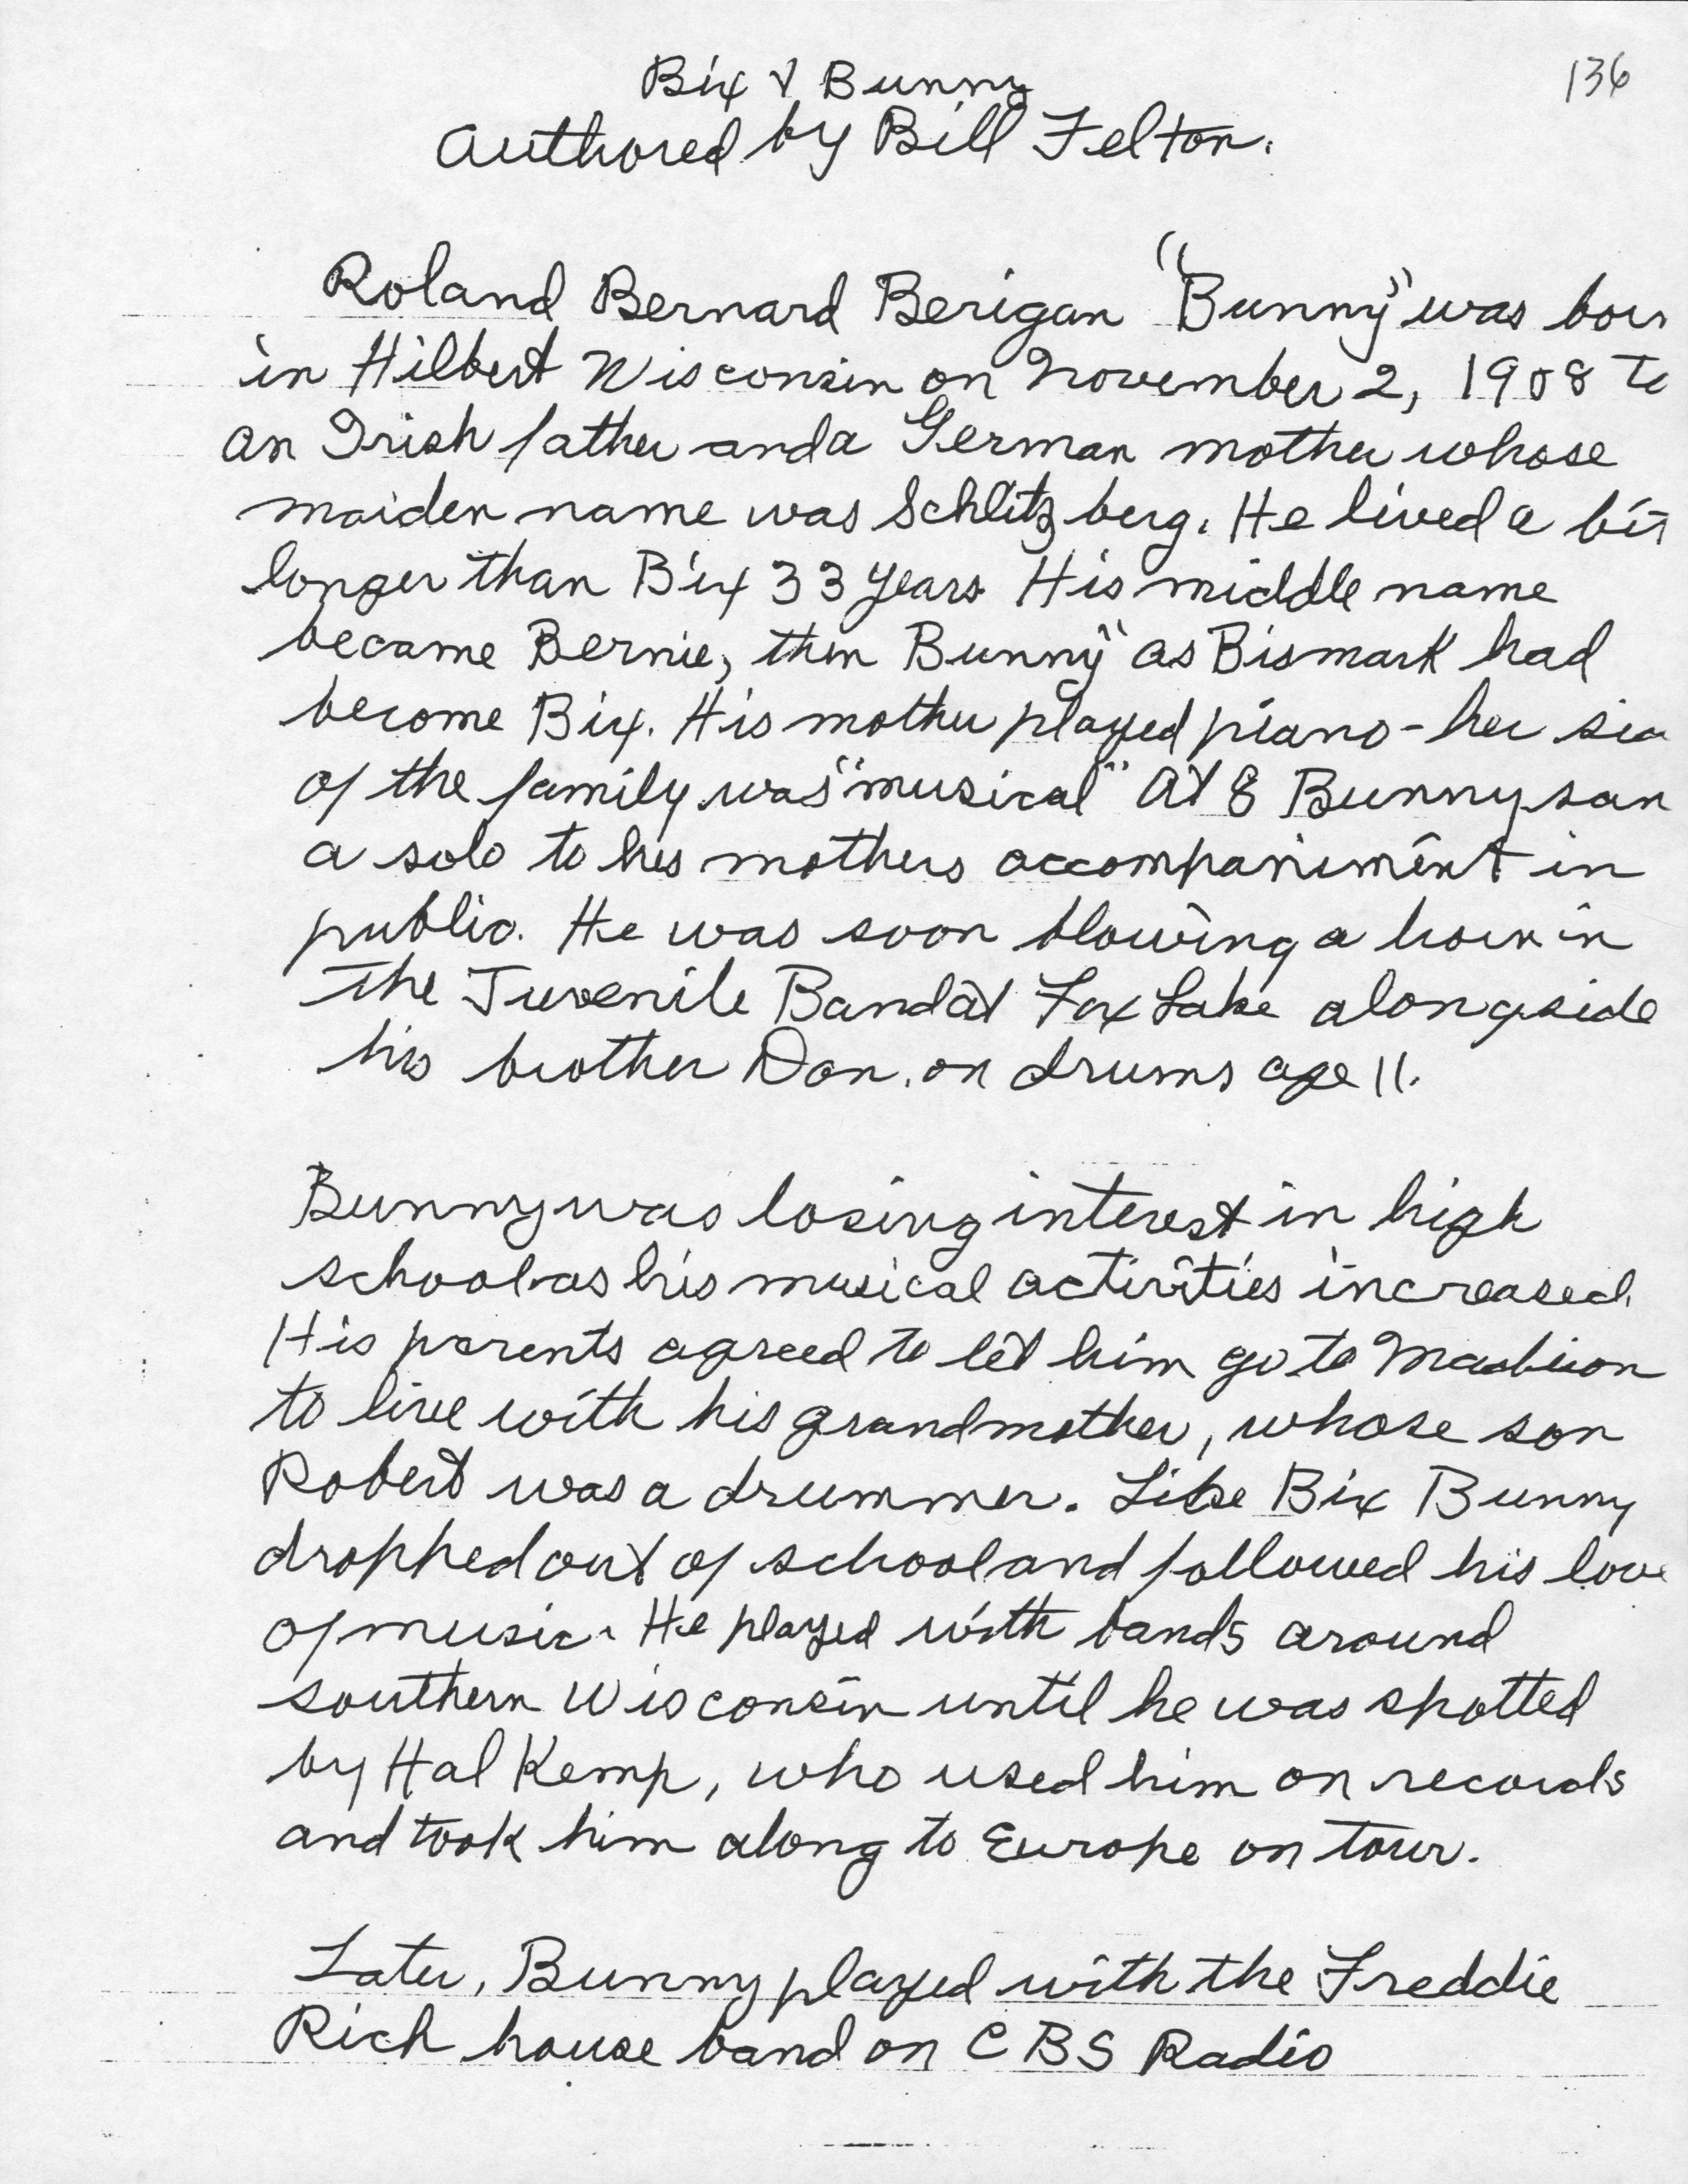 Bix & Bunny
136
Authored by Bill Felton.
Roland Bernard Berigan "Bunny" was bor
in Hilbert Wisconsin on November 2, 1908 to
an Irish father and a German mother whose
maiden name was Schlitzberg. He lived a bit
longer than Bix 33 years. His middle name
became Bernie, then Bunny" as Bismark had
become Bix. His mother played piano - her si
of the family was "musical" At 8 Bunny san
a solo to his mothers accompaniment in
public. He was soon blowing a horn in
the Juvenile Band at Fox Lake alongside
his brother Don, on drums age 11.
Bunny was losing interest in high
school as his musical activities increased.
His parents agreed to let him go to Madison
to live with his grandmother, whose son
Robert was a drummer. Like Bix Bunny
dropped out of school and followed his love
of music. He played with bands around
southern Wisconsin until he was spotted
by Hal Kemp, who used him on records
and took him along to Europe on tour.
Later, Bunny played with the Freddie
Rich house band on CBS Radio